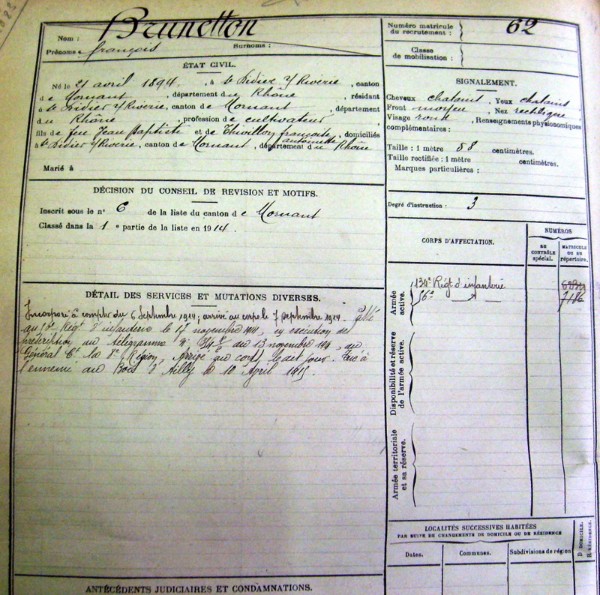 1822
Nom : Brunetton
Prénoms : françois Surnoms :
Numéro matricule du recrutement : 62
Classe de mobilisation :
ÉTAT CIVIL.
Né le 21 avril 1894, à St Didier s/ Riverie, canton
de Mornant, département du Rhône, résidant
à St Didier s/ Riverie, canton de Mornant, département
du Rhône, profession de cultivateur
fils de feu Jean Baptiste et de Thivillon françoise antoinette, domiciliés
à St Didier s/ Riverie, canton de Mornant, département du Rhône
Marié à
SIGNALEMENT.
Cheveux chatains Yeux chatains
Front moyen Nez rectiligne
Visage rond Renseignements physionomiques
complémentaires :
Taille : 1 mètre 58 centimètres.
Taille rectifiée : 1 mètre centimètres.
Marques particulières :
Degré d'instruction : 3
DÉCISION DU CONSEIL DE REVISION ET MOTIFS.
Inscrit sous le n° 6 de la liste du canton de Mornant
Classé dans la 1e partie de la liste en 1914.
DÉTAIL DES SERVICES ET MUTATIONS DIVERSES.
Incorporé à compter du 6 Septembre 1914, arrivé au corps le 7 septembre 1914. Passé
au Régt d'infanterie le 17 novembre 1914, en exécution des
prescription du télégramme du 13 novembre 1914, du
Général Ct la 8e Région, Arrivé au corps le dit jour. Tué à
l'ennemi au Bois d'Ailly le 10 Avril 1915.
CORPS D'AFFECTATION.
NUMÉROS
DE CONTRÔLE spécial.
MATRICULE OU DE répertoire.
Armée active.
134e Régt d'infanterie
56e
7186
Disponibilité et réserve de l'armée active.
Armée territoriale et sa réserve.
LOCALITÉS SUCCESSIVES HABITÉES
PAR SUITE DE CHANGEMENTS DE DOMICILE OU DE RÉSIDENCE
Dates. Communes. Subdivisions de région
D. DOMICILE.
R. RÉSIDENCE.
ANTÉCÉDENTS JUDICIAIRES ET CONDAMNATIONS.